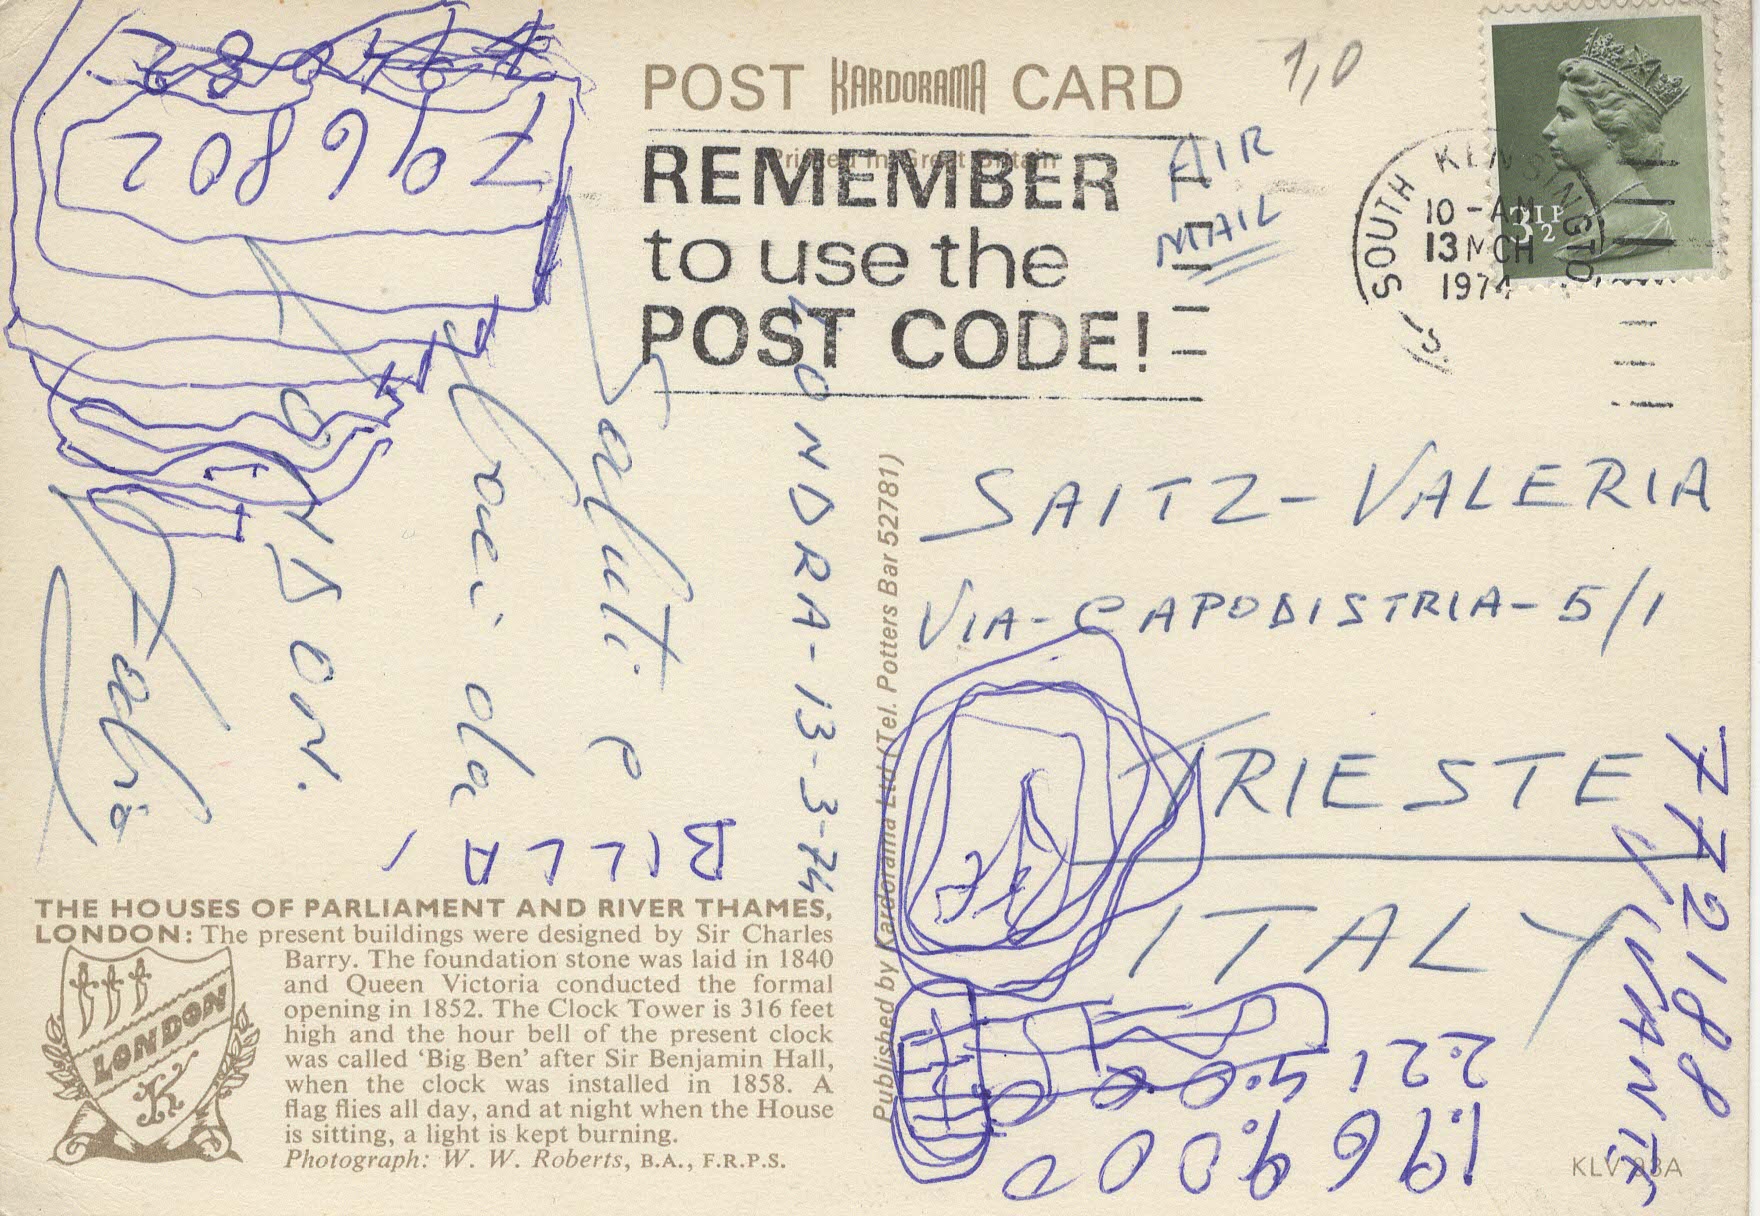 POST KARDORAMA CARD
Printed in Great Britain
REMEMBER
to use the
POST CODE!
AIR
MAIL
1,0
SOUTH KENSINGTON
10-AM
13 MCH
1974
S.
3½P
LONDRA-13-3-74
Saluti e
baci da
LONDON.
Fabio
SAITZ-VALERIA
VIA-CAPODISTRIA-5/1
TRIESTE
ITALY
796802
BILLA
772188
2.21
1.969.000
Published by Kardorama Ltd (Tel. Potters Bar 52781)
THE HOUSES OF PARLIAMENT AND RIVER THAMES,
LONDON: The present buildings were designed by Sir Charles
Barry. The foundation stone was laid in 1840
and Queen Victoria conducted the formal
opening in 1852. The Clock Tower is 316 feet
high and the hour bell of the present clock
was called ‘Big Ben’ after Sir Benjamin Hall,
when the clock was installed in 1858. A
flag flies all day, and at night when the House
is sitting, a light is kept burning.
Photograph: W. W. Roberts, B.A., F.R.P.S.
LONDON
K